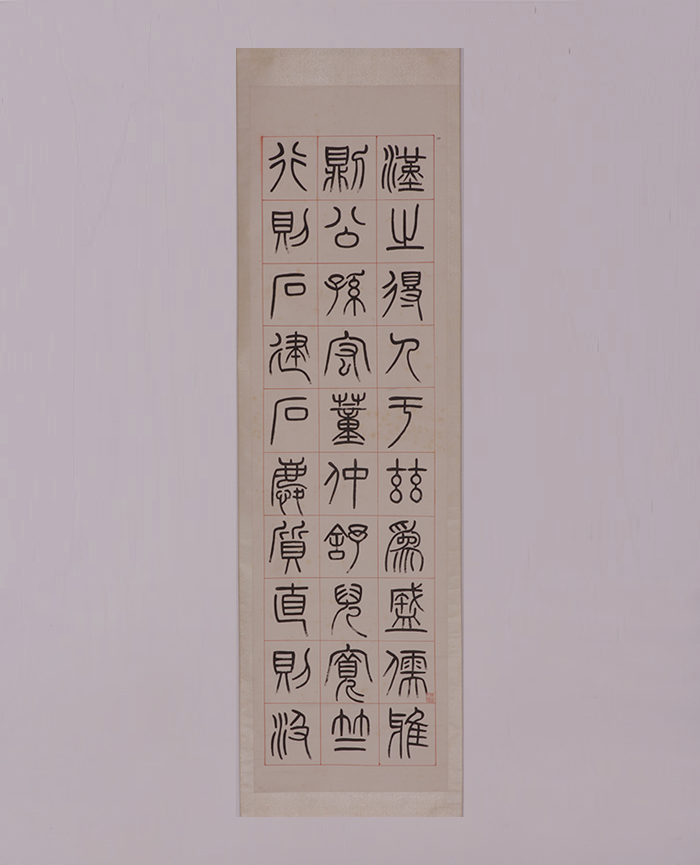 漢之得人于茲為盛儒雅
則公孫宏董仲舒兒寬竺
行則石建石慶質直則汲